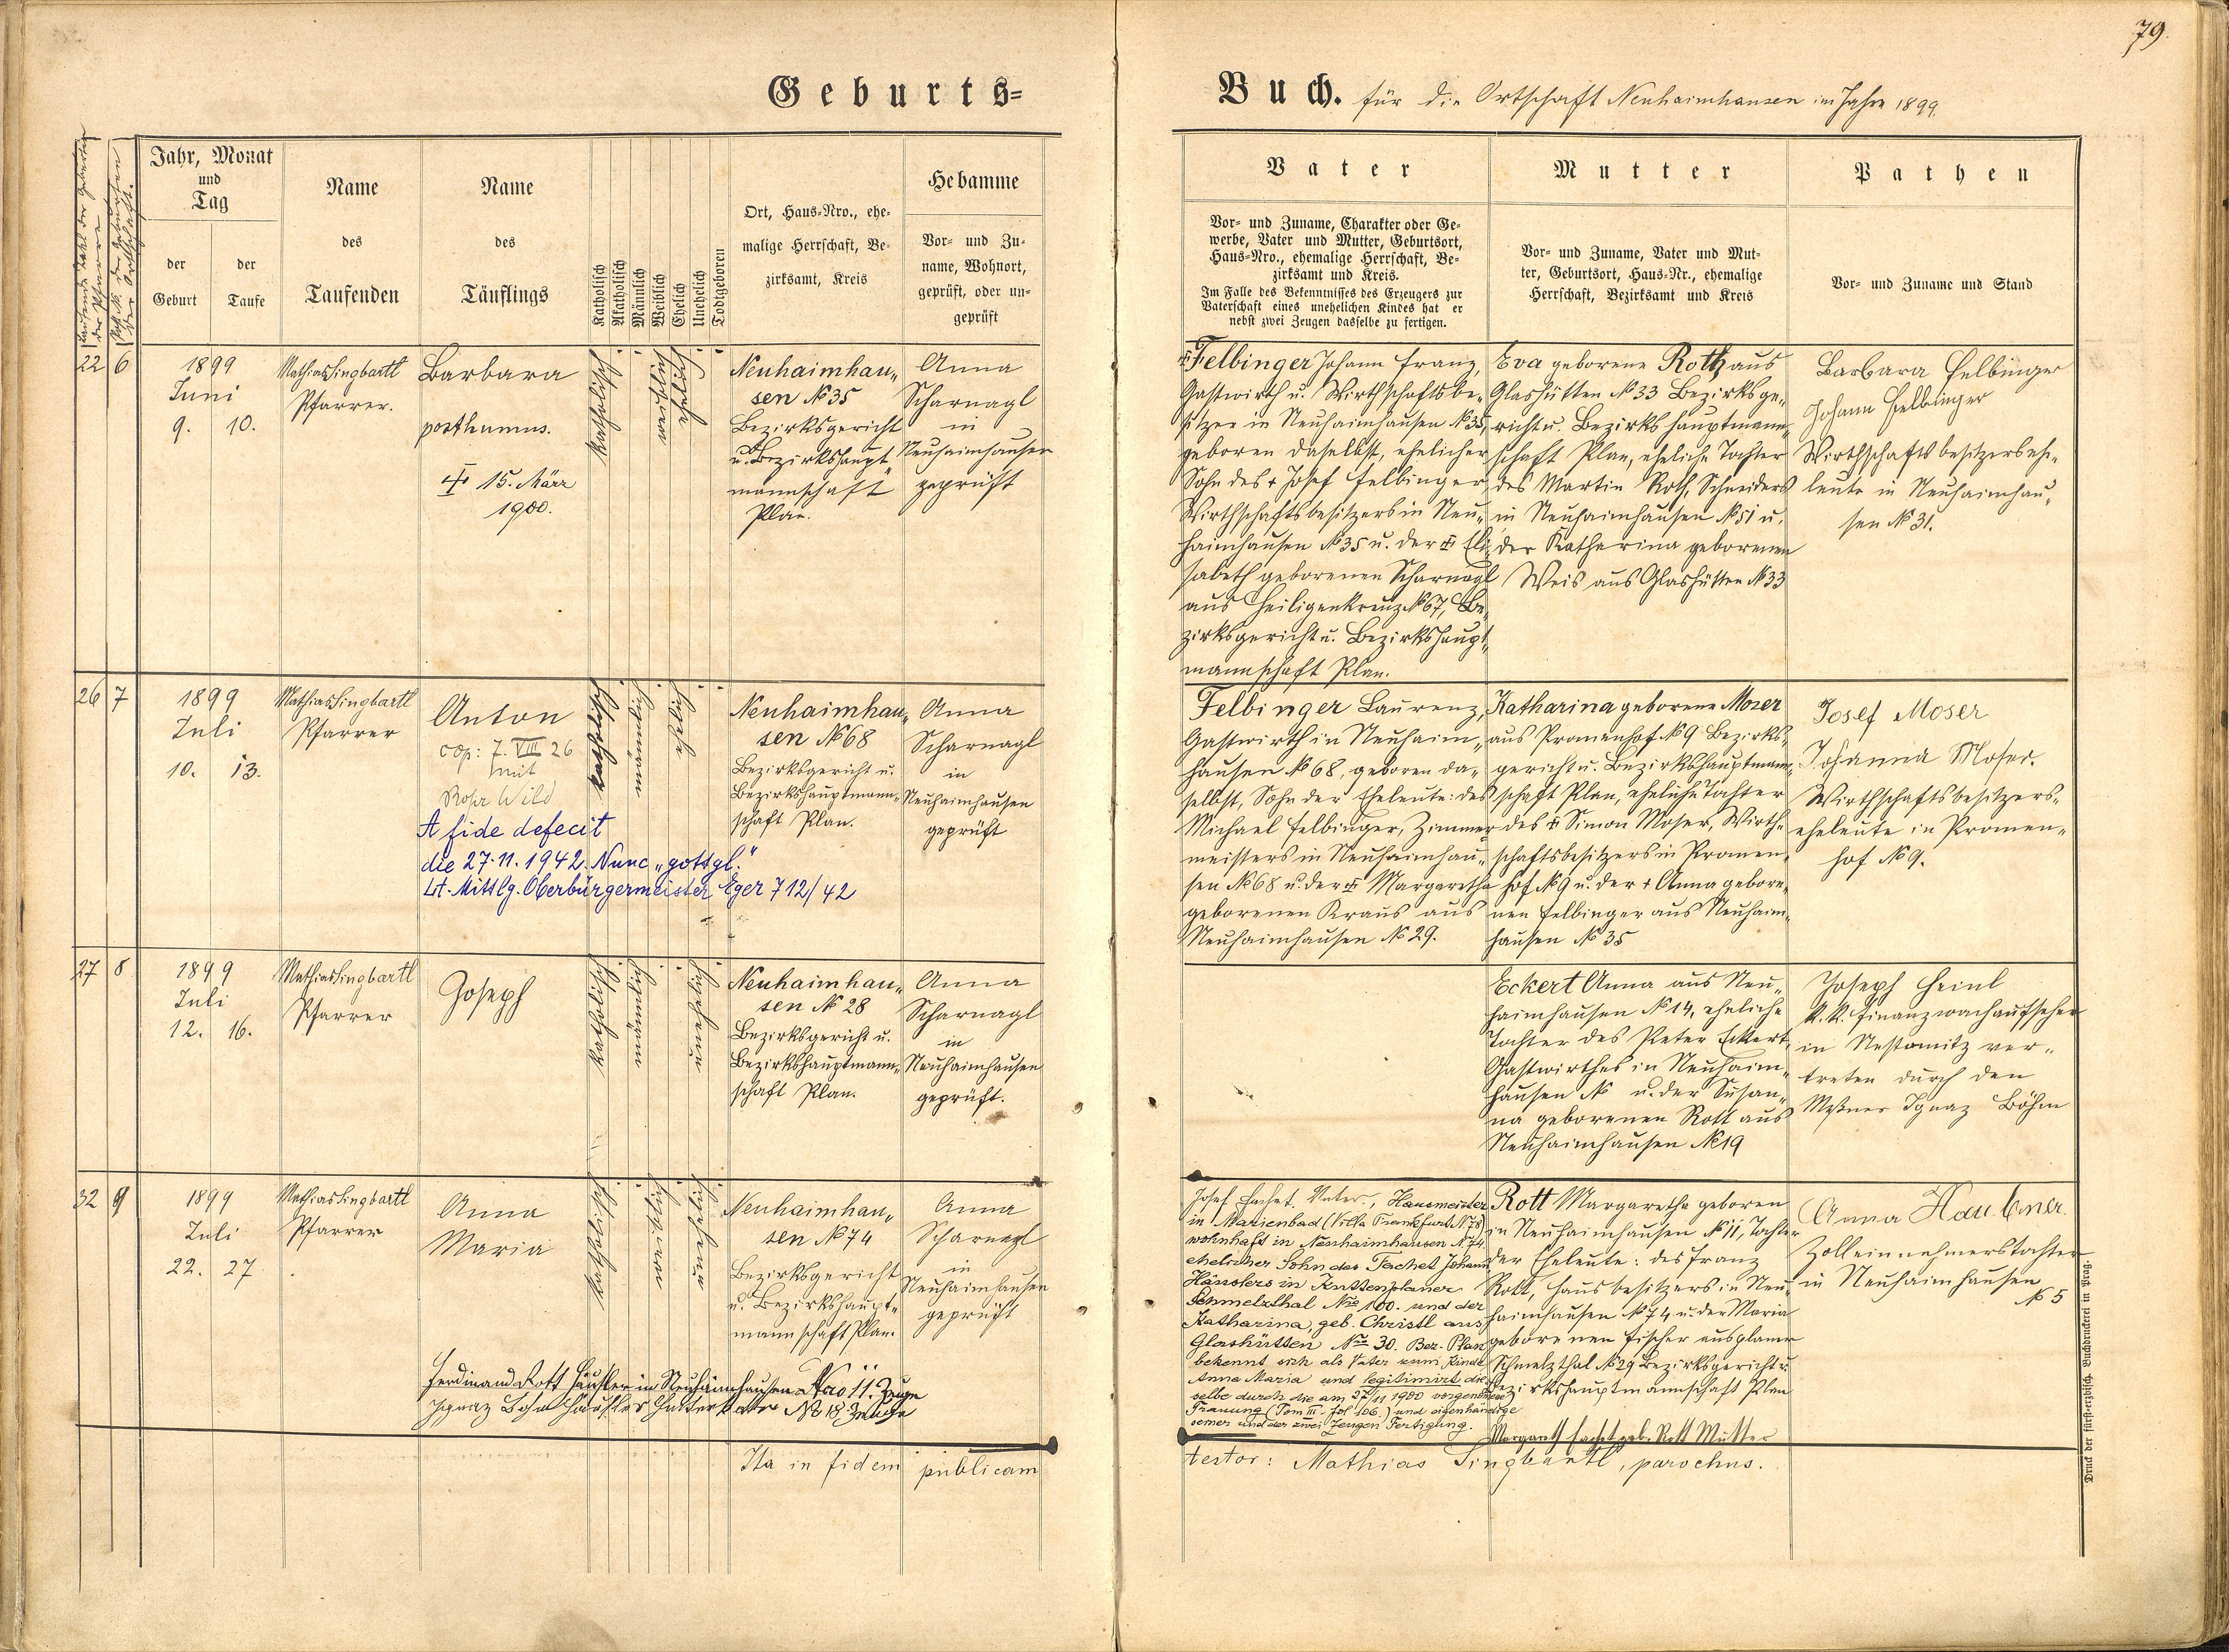 79.
Geburts=
Buch. für die Ortschaft Neuhaimhausen im Jahre 1899.
Jahr, Monat
und
Tag
der
Geburt
der
Taufe
Name
des
Taufenden
Name
des
Täuflings
Katholisch
Akatholisch
Männlich
Weiblich
Ehelich
Unehelich
Todtgeboren
Ort, Haus=Nro., ehe=
malige Herrschaft, Be=
zirksamt, Kreis
Hebamme
Vor= und Zu=
name, Wohnort,
geprüft, oder un=
geprüft
Vater
Vor= und Zuname, Charakter oder Ge=
werbe, Vater und Mutter, Geburtsort,
Haus=Nro., ehemalige Herrschaft, Be=
zirksamt und Kreis.
Im Falle des Bekenntnisses des Erzeugers zur
Vaterschaft eines unehelichen Kindes hat er
nebst zwei Zeugen dasselbe zu fertigen.
Mutter
Vor= und Zuname, Vater und Mut=
ter, Geburtsort, Haus=Nr., ehemalige
Herrschaft, Bezirksamt und Kreis
Pathen
Vor= und Zuname und Stand
22 6
1899
Juni
9. 10.
Mathias Singbartl
Pfarrer.
Barbara
posthumus.
15. März
1900.
katholisch
weiblich
ehelich
Neuhaimhau„
sen № 35
Bezirksgericht
u. Bezirkshaupt„
mannschaft
Plan.
Anna
Scharnagl
in
Neuhaimhausen
geprüft
Felbinger Johann Franz,
Gastwirth u. Wirthschaftsbe„
sitzer in Neuhaimhausen № 35,
geboren daselbst, ehelicher
Sohn des † Josef Felbinger,
Wirthschaftsbesitzers in Neu„
haimhausen № 35 u. der Eli„
sabeth geborenen Scharnagl
aus Heiligenkreuz № 67, Be„
zirksgericht u. Bezirkshaupt„
mannschaft Plan.
Eva geborene Roth aus
Glashütten № 33 Bezirksge„
richt u. Bezirkshauptmann„
schaft Plan, eheliche Tochter
des Martin Roth, Schneiders
in Neuhaimhausen № 51 u.
der Katharina geborenen
Weis aus Glashütten № 33
Barbara Felbinger
Johann Felbinger
Wirthschaftsbesitzersehe„
leute in Neuhaimhau„
sen № 31.
26 7
1899
Juli
10. 13.
Mathias Singbartl
Pfarrer
Anton
cop: 7. VIII 26
mit
Wild
A fide defecit
die 27.11.1942. Nunc „gottgl."
Lt. Mittlg. Oberbürgermeister Eger 712/42
katholisch
männlich
ehelich
Neuhaimhau„
sen № 68
Bezirksgericht u.
Bezirkshauptmann„
schaft Plan.
Anna
Scharnagl
in
Neuhaimhausen
geprüft
Felbinger Laurenz,
Gastwirth in Neuhaim„
hausen № 68, geboren da„
selbst, Sohn der Eheleute: des
Michael Felbinger, Zimmer„
meisters in Neuhaimhau„
sen № 68 u. der Margaretha
geborenen Kraus aus
Neuhaimhausen № 29.
Katharina geborene Moser
aus Promenhof № 9 Bezirks„
gericht u. Bezirkshauptmann„
schaft Plan, eheliche Tochter
des Simon Moser, Wirth„
schaftsbesitzers in Promen„
hof № 9 u. der † Anna gebore„
nen Felbinger aus Neuhaim„
hausen № 35
Josef Moser
Johanna Moser.
Wirthschaftsbesitzers„
eheleute in Promen„
hof № 9.
27 8
1899
Juli
12. 16.
Mathias Singbartl
Pfarrer
Joseph
katholisch
männlich
unehelich
Neuhaimhau„
sen № 28
Bezirksgericht u.
Bezirkshauptmann„
schaft Plan.
Anna
Scharnagl
in
Neuhaimhausen
geprüft.
Eckert Anna aus Neu„
haimhausen № 14, eheliche
Tochter des Peter Eckert,
Gastwirthes in Neuhaim„
hausen № u. der Susan„
na geborenen Rott aus
Neuhaimhausen № 19
Joseph Heinl
k. k. Finanzwachaufseher
in Nestomitz ver„
treten durch den
Meßner Ignaz Böhm
32 9
1899
Juli
22. 27.
Mathias Singbartl
Pfarrer
Anna
Maria
katholisch
weiblich
unehelich
Neuhaimhau„
sen № 74
Bezirksgericht
u. Bezirkshaupt„
mannschaft Plan.
Anna
Scharnagl
in
Neuhaimhausen
geprüft
Ferdinand Rott Häusler in Neuhaimhausen Nro 11. Zeuge
Ignaz Böhm Häusler № 18 Zeuge
Josef Tachet Vater, Hausmeister
in Marienbad (Villa Frankfurt № 78)
wohnhaft in Neuhaimhausen № 74
ehelicher Sohn des Tachet Johann
Häuslers in Kuttenplaner
Schmelzthal Nro 100. und der
Katharina, geb. Christl aus
Glashütten Nro 30. Bez. Plan
bekennt sich als Vater zum Kinde
Anna Maria und legitimirt die„
selbe durch die am 27/11 1900 vorgenommene
Trauung (Tom III. fol 106.) und eigenhändige
seiner und der zwei Zeugen Fertigung.
Rott Margaretha geboren
in Neuhaimhausen № 11, Tochter
der Eheleute: des Franz
Rott, Hausbesitzers in Neu„
haimhausen № 74 u. der Maria
geborenen Fischer aus Planer
Schmelzthal № 29 Bezirksgericht u.
Bezirkshauptmannschaft Plan
Margareth Tachet geb. Rott Mutter
Anna Haubner
Zolleinnehmerstochter
in Neuhaimhausen
№ 5
Ita in fidem publicam
testor: Mathias Singbartl, parochus.
Druck der fürst-erzbisch. Buchdruckerei in Prag.